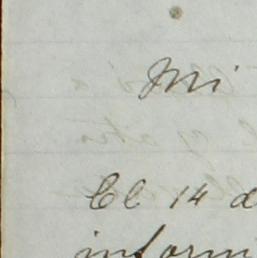 Mi
El 14 d
inform